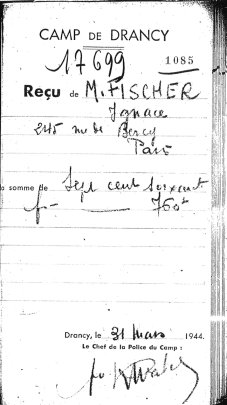 CAMP DE DRANCY
17699 1085
Reçu de M. FISCHER
Ignace
245 rue de Bercy
Paris
la somme de Sept cent soixante
f- — 760f
Drancy, le 31 Mars 1944.
Le Chef de la Police du Camp :
po